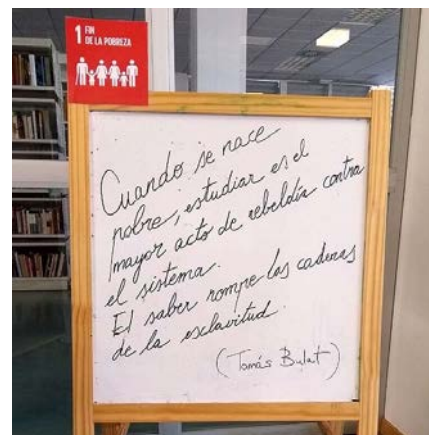 1 FIN
DE LA POBREZA
Cuando se nace
pobre, estudiar es el
mayor acto de rebeldía contra
el sistema.
El saber rompe las cadenas
de la esclavitud.
(Tomás Bulat)